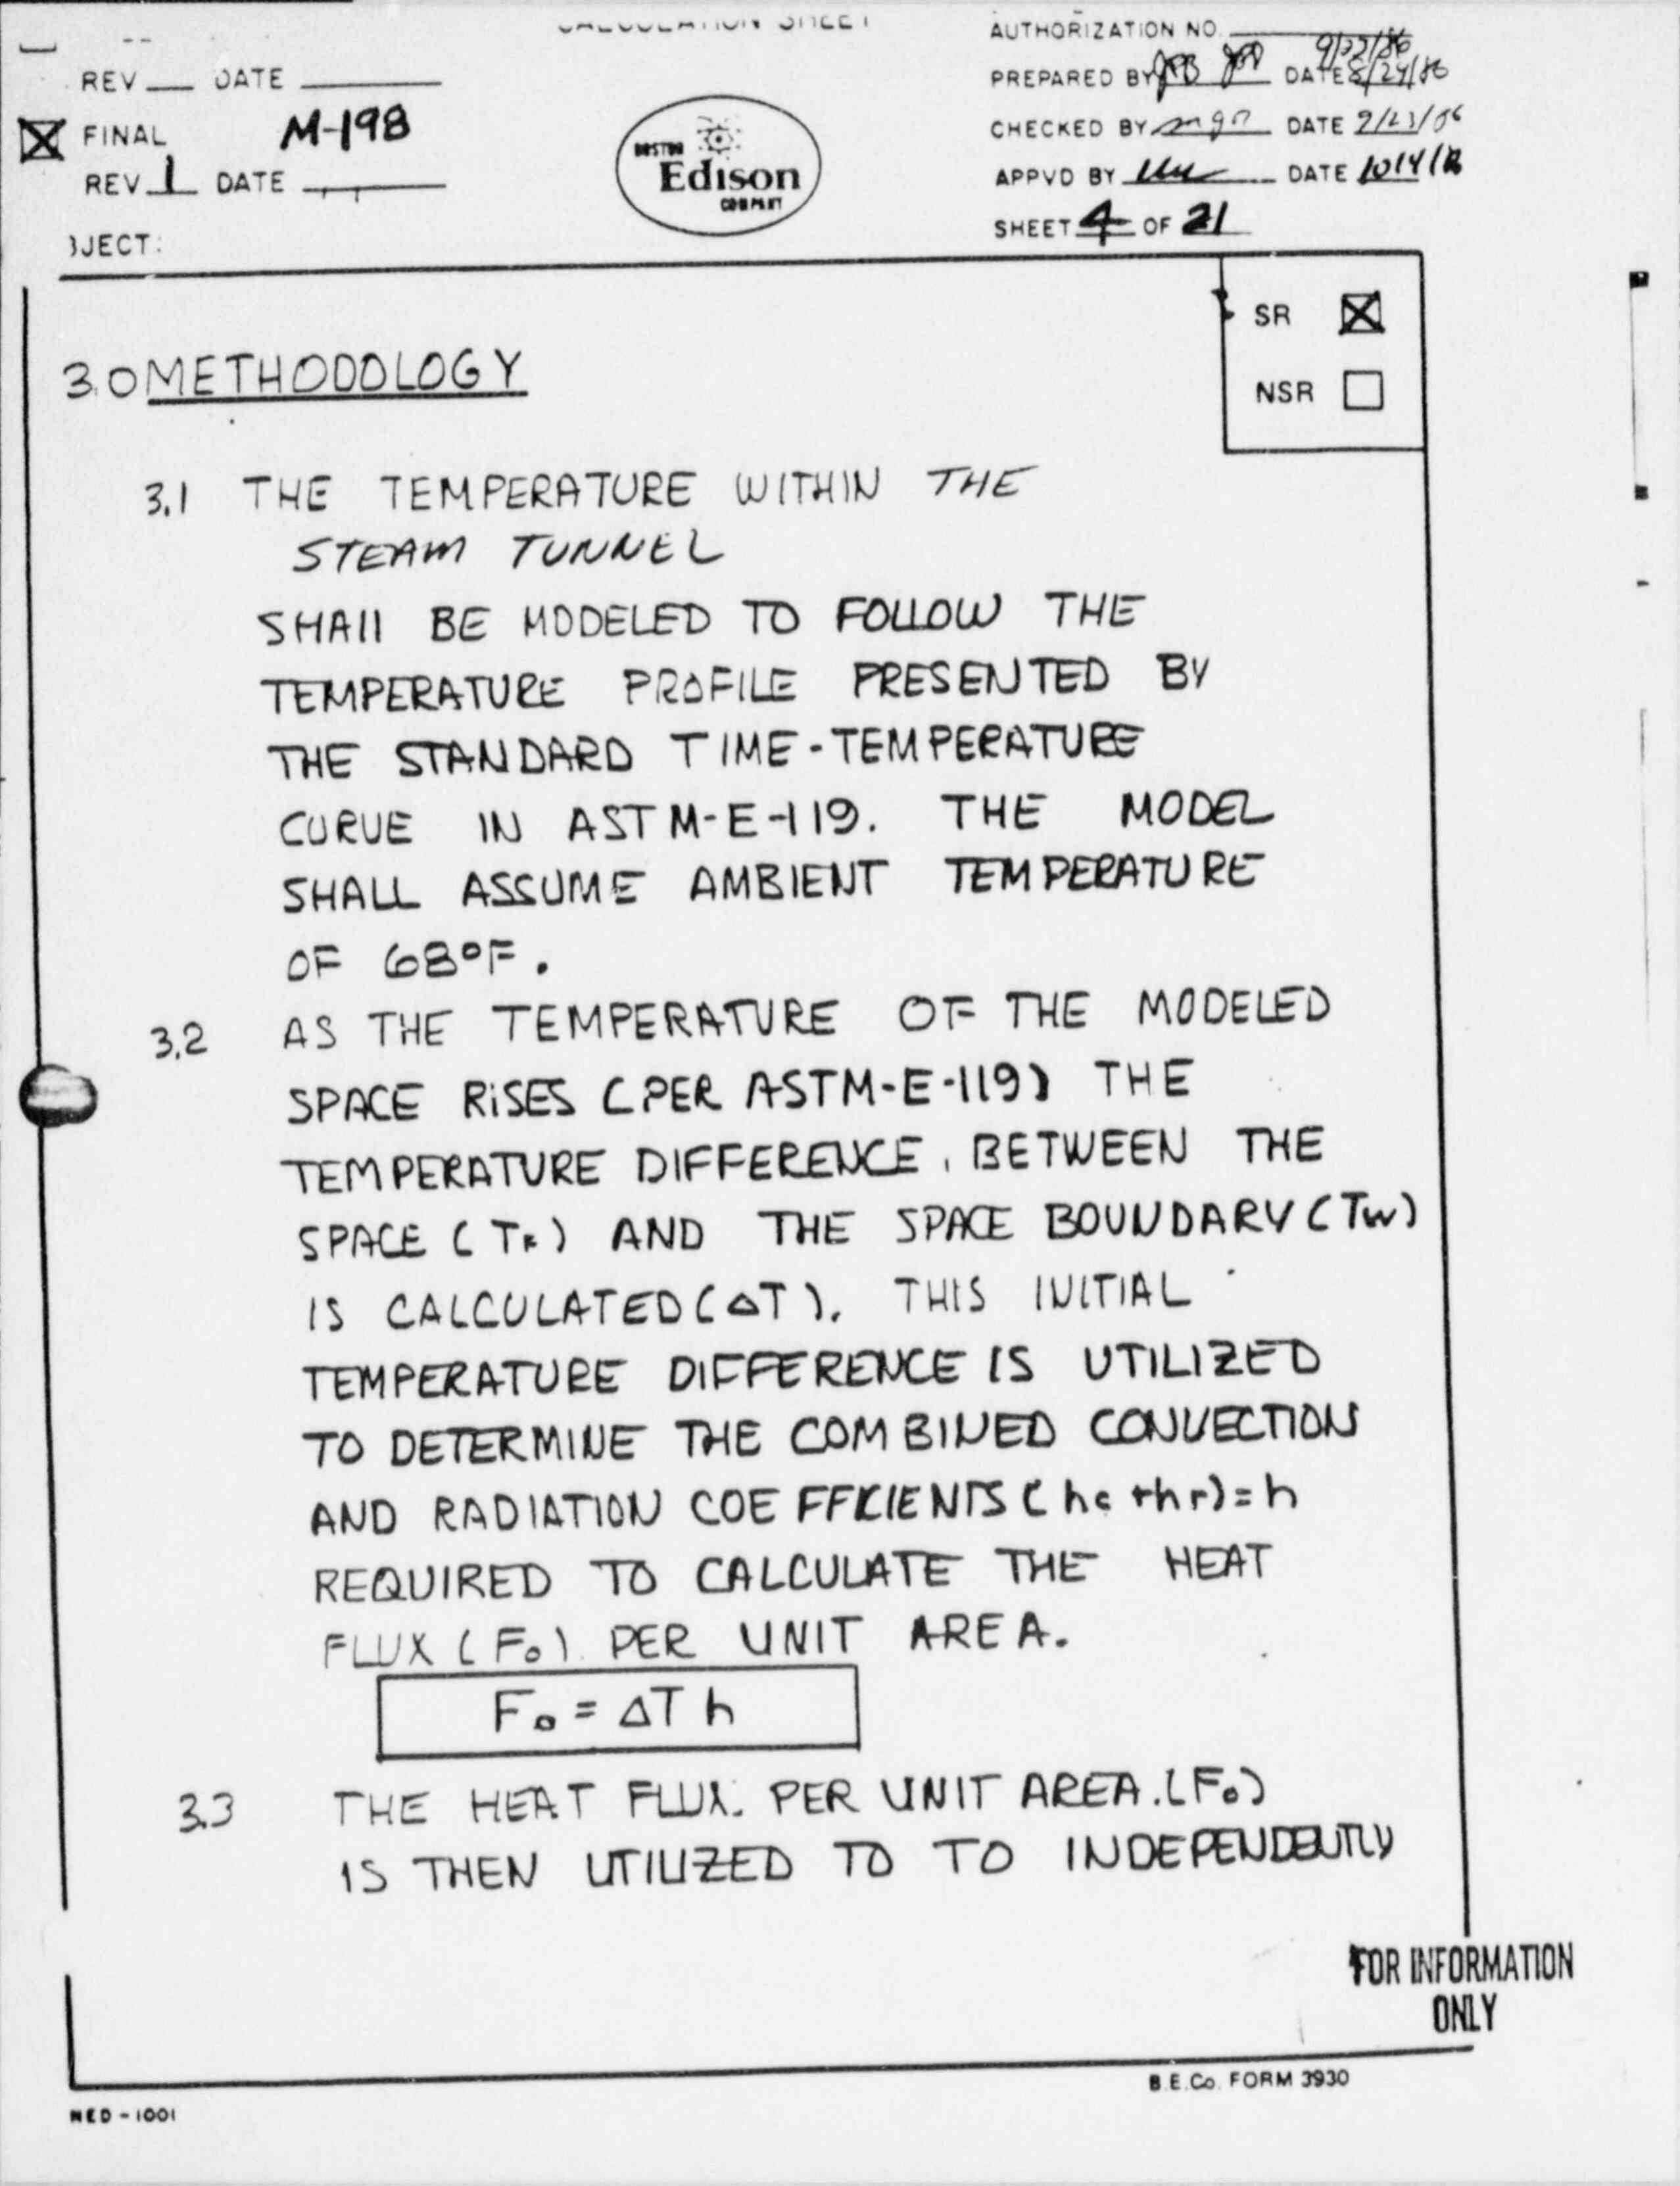 CALCULATION SHEET
AUTHORIZATION NO.
REV DATE
PREPARED BY DATE 8/24/86
9/22/86
FINAL M-198
CHECKED BY DATE 9/23/86
REV 1 DATE
BOSTON
Edison
COMPANY
APPVD BY DATE
SHEET 4 OF 21
BJECT:
SR
NSR
3.0 METHODOLOGY
3.1 THE TEMPERATURE WITHIN THE
STEAM TUNNEL
SHALL BE MODELED TO FOLLOW THE
TEMPERATURE PROFILE PRESENTED BY
THE STANDARD TIME-TEMPERATURE
CURVE IN ASTM-E-119. THE MODEL
SHALL ASSUME AMBIENT TEMPERATURE
OF 68°F.
3.2 AS THE TEMPERATURE OF THE MODELED
SPACE RISES (PER ASTM-E-119) THE
TEMPERATURE DIFFERENCE, BETWEEN THE
SPACE (TF) AND THE SPACE BOUNDARY (TW)
IS CALCULATED (ΔT). THIS INITIAL
TEMPERATURE DIFFERENCE IS UTILIZED
TO DETERMINE THE COMBINED CONVECTION
AND RADIATION COEFFICIENTS (hc + hr) = h
REQUIRED TO CALCULATE THE HEAT
FLUX (Fo) PER UNIT AREA.
Fo = ΔT h
3.3 THE HEAT FLUX. PER UNIT AREA. (Fo)
IS THEN UTILIZED TO TO INDEPENDENTLY
FOR INFORMATION
ONLY
B.E.Co. FORM 3930
NED-1001